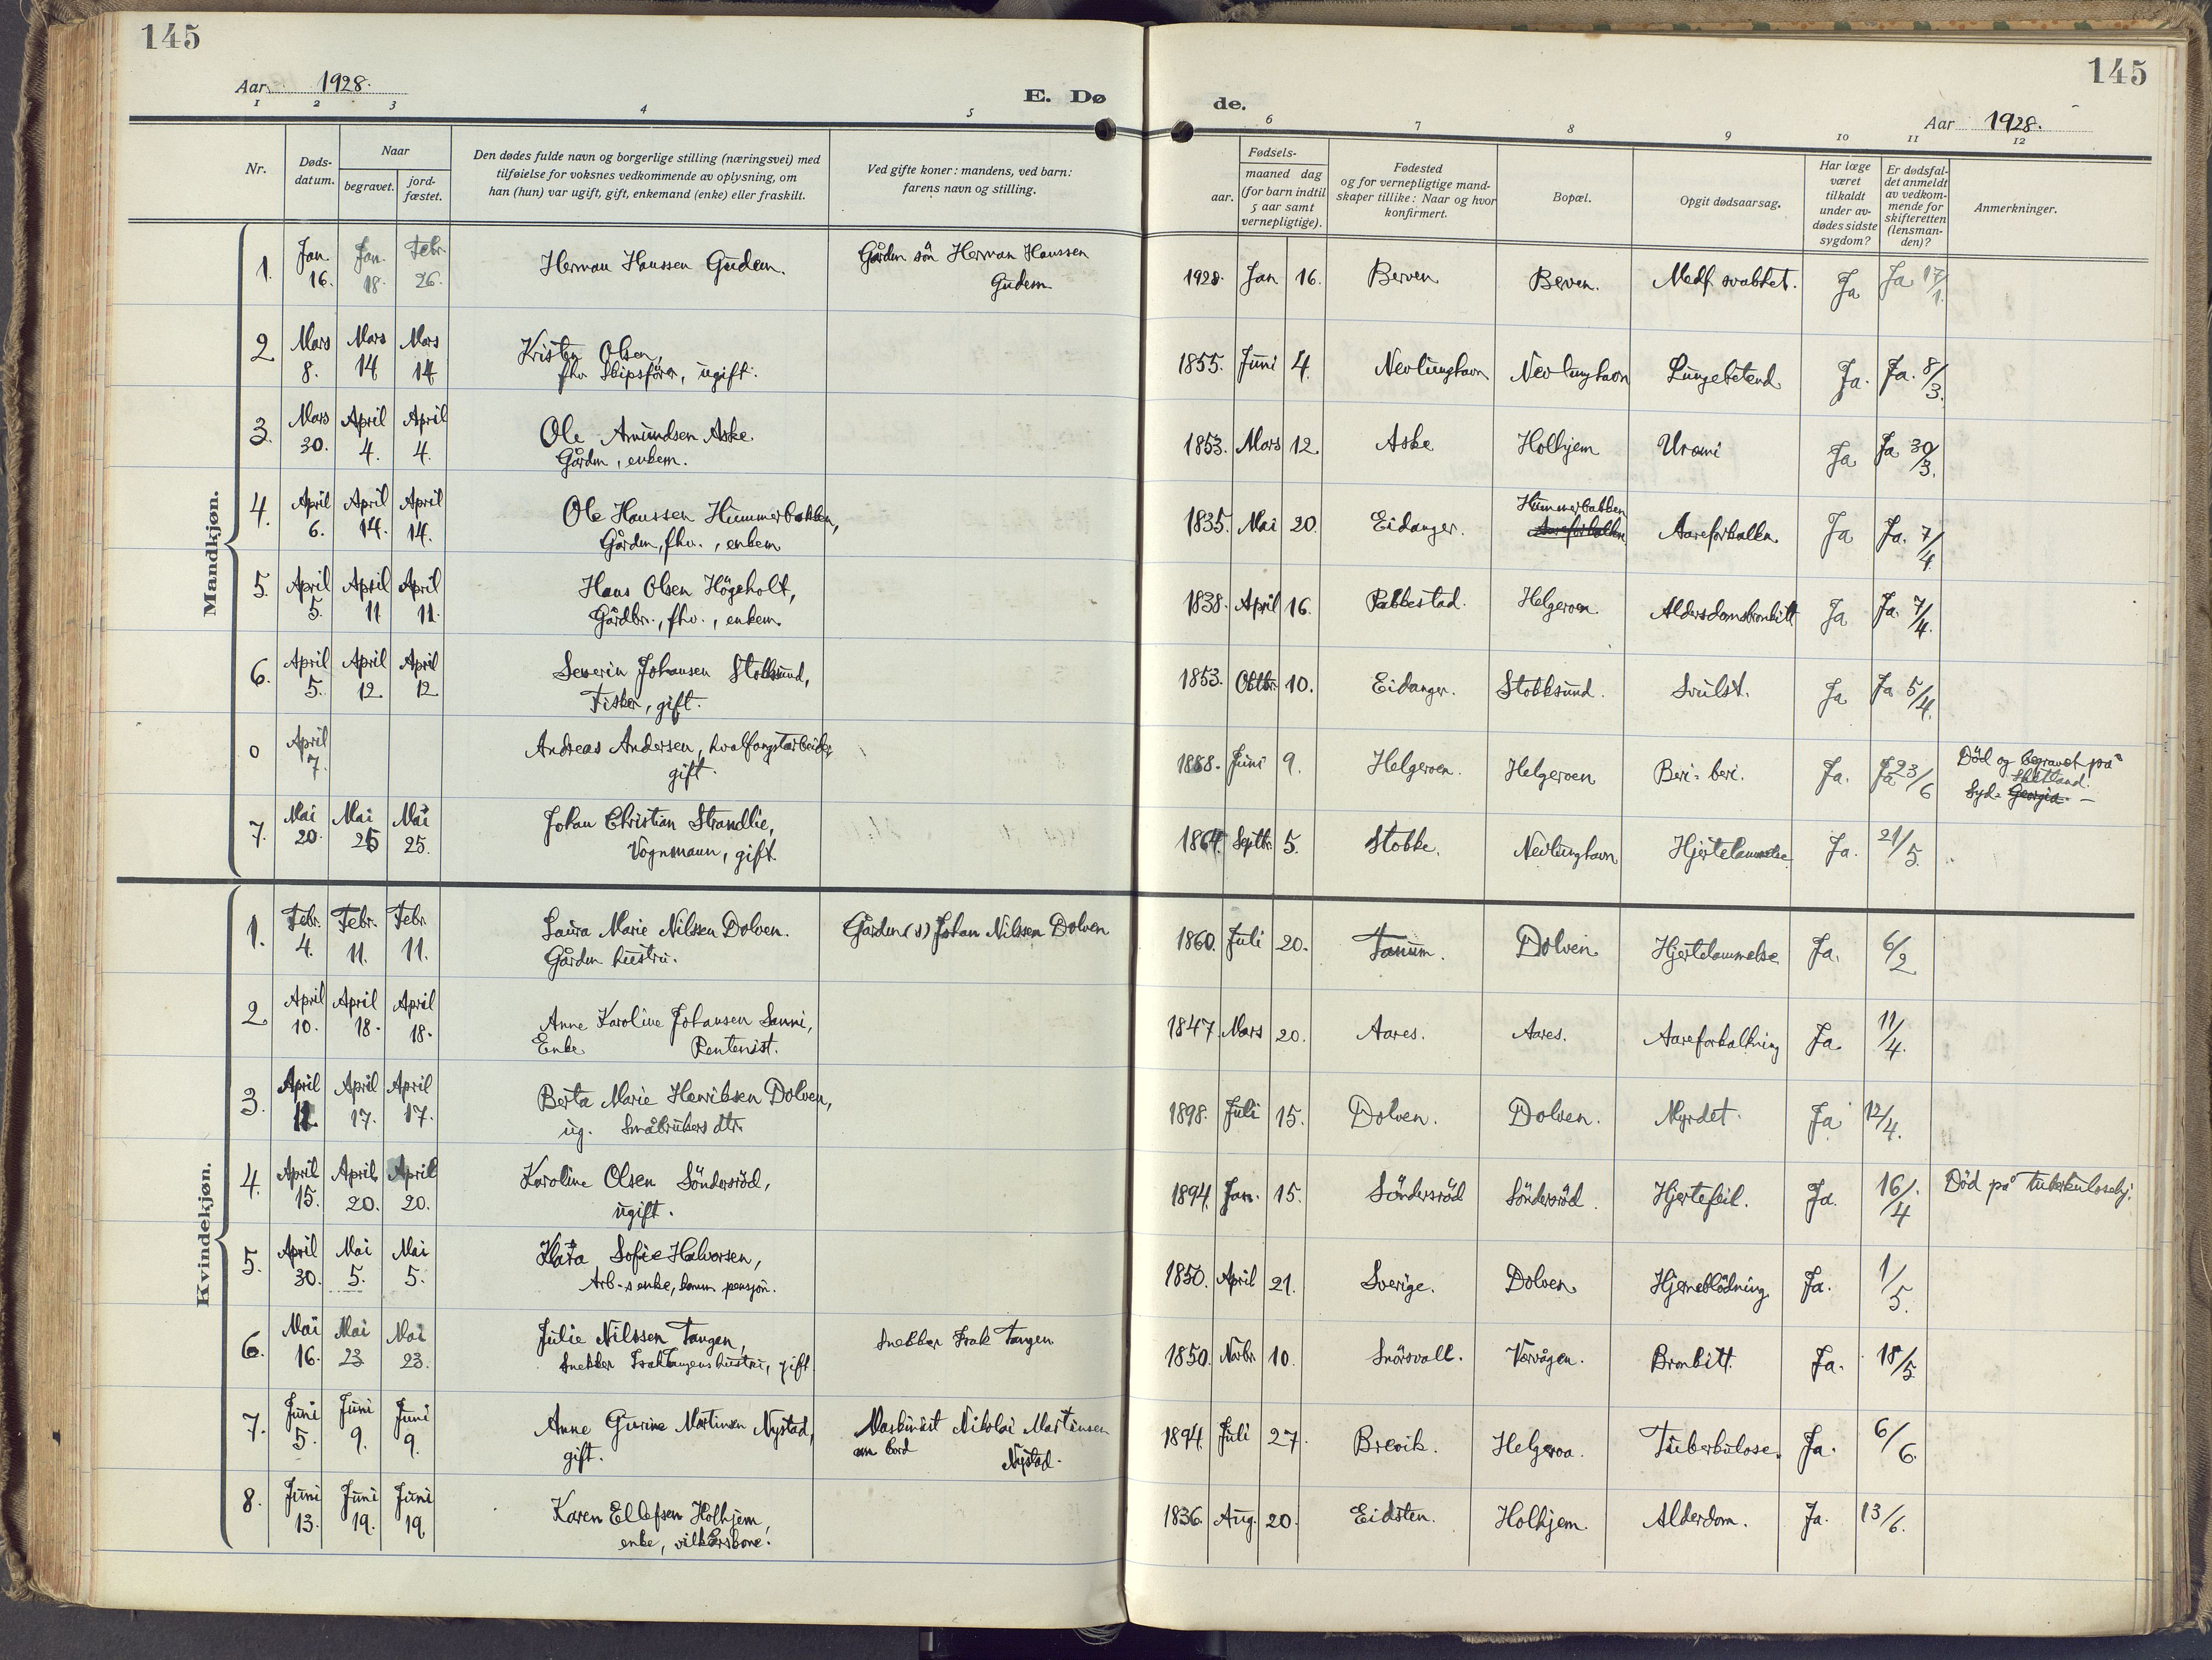 145
145
Aar 1928.
E. Dø
de.
Aar 1928.
1 2 3 4 5 6 7 8 9 10 11 12
Nr.
Døds-
datum.
Naar
begravet.
jord-
fæstet.
Den dødes fulde navn og borgerlige stilling (næringsvei) med
tilføielse for voksnes vedkommende av oplysning, om
han (hun) var ugift, gift, enkemand (enke) eller fraskilt.
Ved gifte koner: mandens, ved barn:
farens navn og stilling.
Fødsels-
aar.
maaned dag
(for barn indtil
5 aar samt
vernepligtige).
Fødested
og for vernepligtige mand-
skaper tillike: Naar og hvor
konfirmert.
Bopæl.
Opgit dødsaarsag.
Har læge
været
tilkaldt
under av-
dødes sidste
sygdom?
Er dødsfal-
det anmeldt
av vedkom-
mende for
skifteretten
(lensman-
den)?
Anmerkninger.
Mandkjøn.
1. Jan. 16. Jan. 18. Febr. 26. Herman Hanssen Gudem. Gårdm sön Herman Hanssen
Gudem 1928. Jan 16. Berven Berven. Medf. svakhet. Ja Ja 17/1.
2 Mars 8. Mars 14 Mars 14 Kristen Olsen,
fhv Skipsförer, ugift. 1855. Juni 4. Nevlunghavn Nevlunghavn Lungebetend. Ja. Ja. 8/3.
3. Mars 30. April 4. April 4. Ole Amundsen Aske.
Gårdm, enkem. 1853. Mars 12 Aske Holhjem Uræmi Ja Ja 30/3.
4. April 6. April 14. April 14. Ole Hanssen Hummerbakken,
Gårdm, fhv., enkem 1835. Mai 20. Eidanger. Hummerbakken
Aareforkalkn. Aareforkalkn. Ja Ja. 7/4.
5. April 5. April 11 April 11. Hans Olsen Högeholt,
Gårdbr., fhv., enkem. 1838. April 16. Pabbestad. Helgeroen. Alderdomsbronkitt Ja Ja. 7/4.
6. April 5. April 12. April 12 Severin Johansen Stokksund,
Fisker, gift. 1853. Oktbr. 10. Eidanger. Stokksund. Svulst. Ja Ja 5/4.
0 April 7. Andreas Andersen, hvalfangstarbeider,
gift. 1888. Juni 9. Helgeroen. Helgeroen Beri-beri. Ja. Ja 23/6 Död og begravet på
Shetland.
Syd- Georgia. -
7. Mai 20. Mai 25 Mai 25. Johan Christian Strandlie,
Vognmann, gift. 1864. Septbr. 5. Stokke. Nevlunghavn Hjertelammelse Ja. 21/5.
Kvindekjøn.
1. Febr. 4. Febr. 11. Febr. 11. Laura Marie Nilssen Dolven.
Gårdm hustru. Gårdm(s) Johan Nilssen Dolven 1860. Juli 20. Tanum. Dolven Hjertelammelse Ja. 6/2
2 April 10. April 18. April 18. Anne Karoline Johansen Sanni,
Enke Rentenist. 1847. Mars 20. Aares. Aares. Aareforkalkning Ja 11/4.
3. April 12. April 17. April 17. Berta Marie Henriksen Dolven,
ug. Småbrukers dtr. 1898. Juli 15. Dolven. Dolven. Myrdet. Ja 12/4.
4. April 15. April 20. April 20. Karoline Olsen Söndersröd,
ugift. 1894. Jan. 15. Söndersröd Söndersröd. Hjertefeil. Ja. 16/4 Död på tuberkulosehj.
5. April 30. Mai 5. Mai 5. Klara Sofie Halvorsen,
Arb-s enke, komm. pensjon. 1850. April 21. Sverige. Dolven Hjerneblödning Ja. 1/5.
6. Mai 16. Mai 23 Mai 23. Julie Nilssen Tangen,
Snekker Isak Tangens hustru, gift. Snekker Isak Tangen 1850. Novbr. 10. Snörsvalt. Vervågen. Bronkitt. Ja. 18/5
7. Juni 5. Juni 9. Juni 9. Anne Gurine Martinsen Nystad,
gift. Maskinist Nikolai Martinsen
om bord Nystad. 1894. Juli 27. Brevik. Helgeroa. Tuberkulose. Ja. 6/6.
8. Juni 13. Juni 19. Juni 19. Karen Ellefsen Holhjem,
enke, vilkårskone. 1836. Aug. 20. Eidsten. Holhjem. Alderdom. Ja. 13/6.